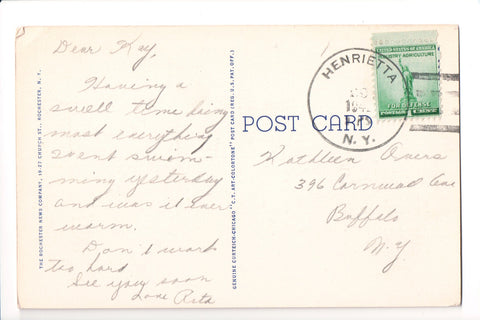 Dear Kay,
Having a
swell time doing
most everything
went swim-
ming yesterday
and was it ever
warm.
Don't work
too hard
See you soon
Love Rita
THE ROCHESTER NEWS COMPANY, 19-27 CHURCH ST., ROCHESTER, N. Y.
GENUINE CURTEICH-CHICAGO "C.T. ART-COLORTONE" POST CARD (REG. U.S. PAT. OFF.)
POST CARD
HENRIETTA
N.Y.
UNITED STATES OF AMERICA
INDUSTRY AGRICULTURE
FOR DEFENSE
POSTAGE 1 CENT
Kathleen
396 Cornwall Ave
Buffalo
N.Y.